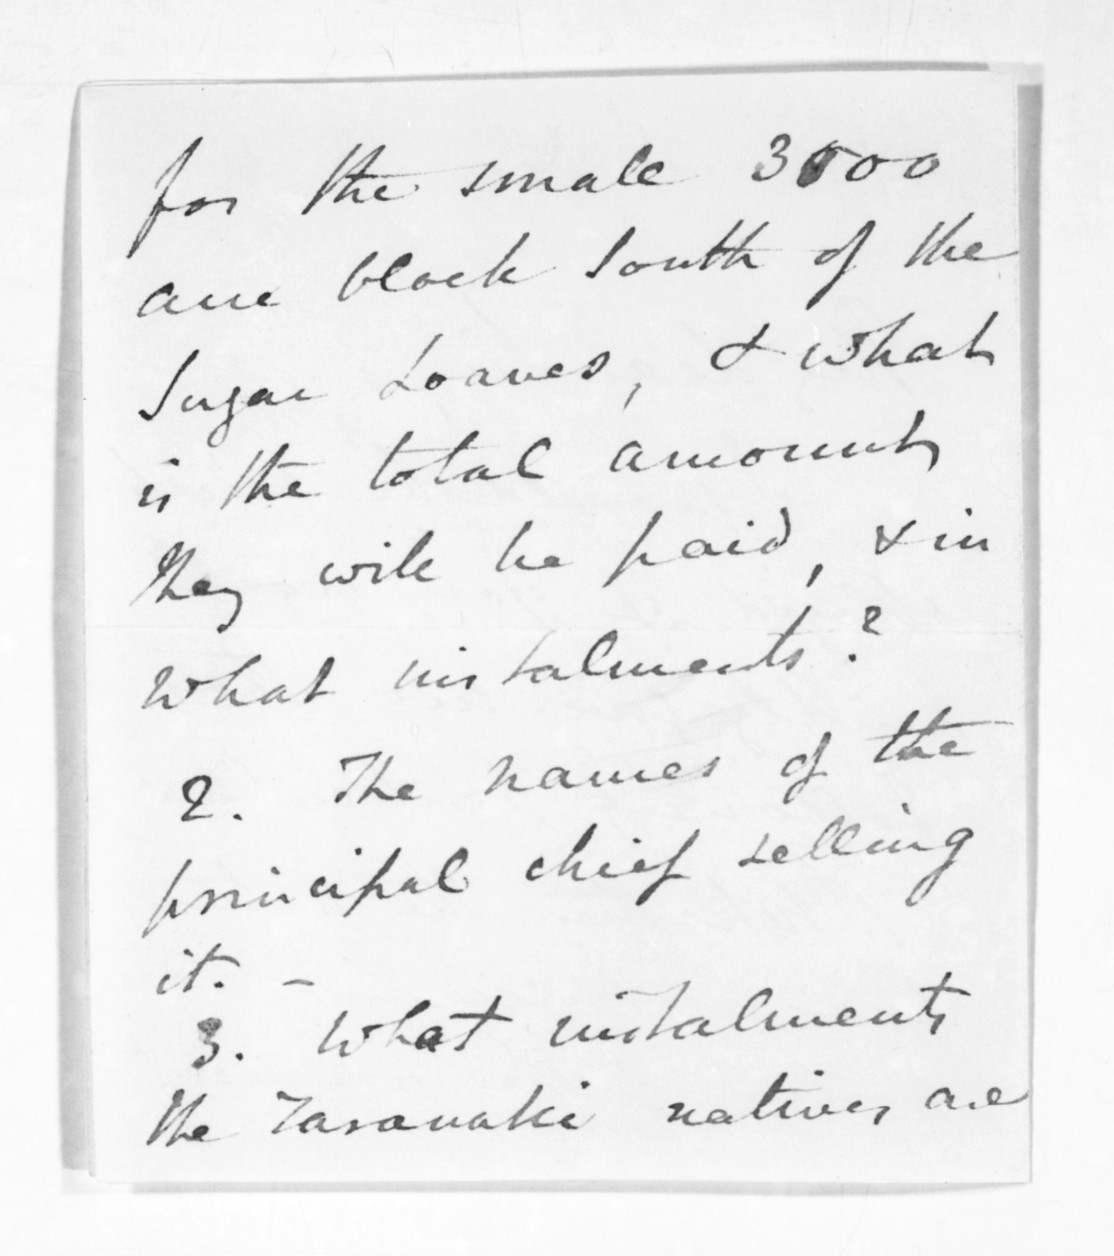 for the small 3500
acre block South of the
Sugar Loaves, & what
is the total amount
they will be paid, & in
what instalments?
2. The names of the
principal chief selling
it. –
3. What instalments
the Taranaki natives are